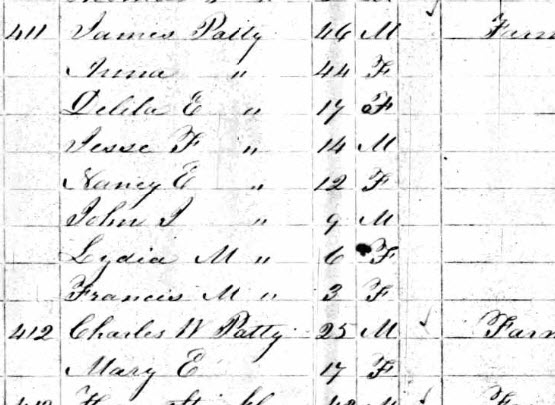 411 James Patty 46 M Farm
Anna " 44 F
Delila E " 17 F
Jesse F " 14 M
Nancy E " 12 F
John J " 9 M
Lydia M " 6 F
Francis M " 3 F
412 Charles W Patty 25 M Farm
Mary E 17 F